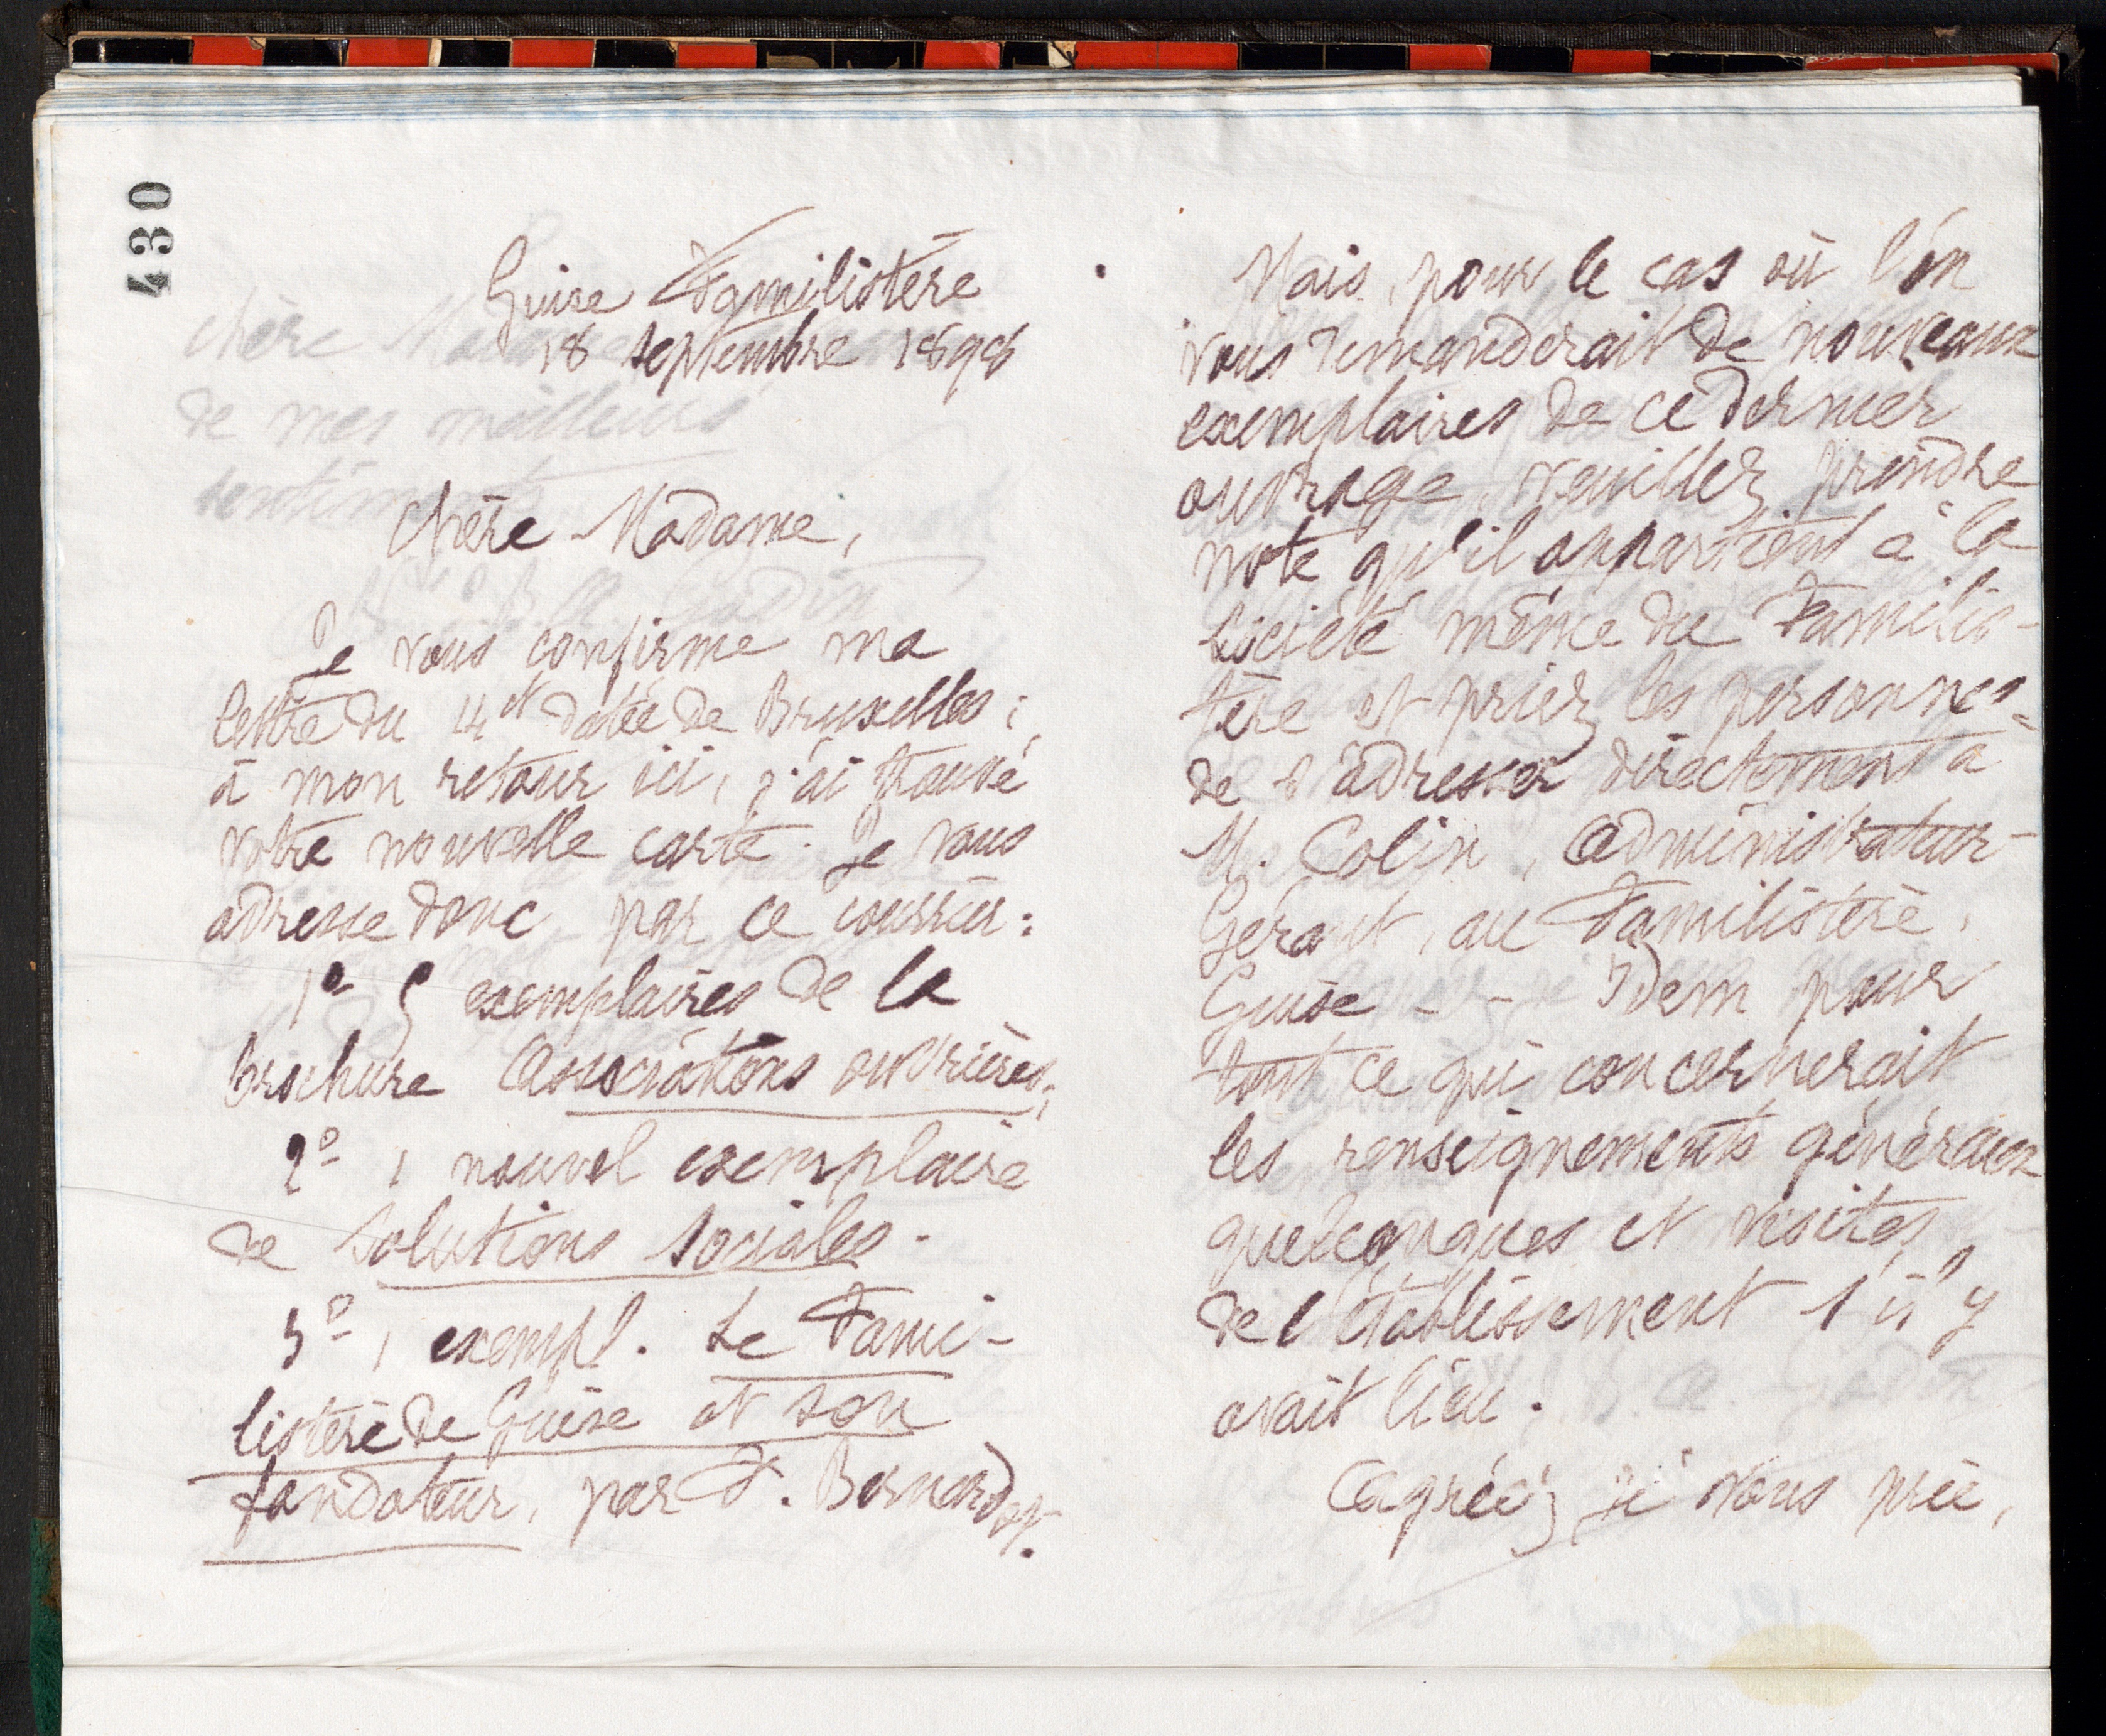 430
Guise Familistère
18 septembre 1898
Chère Madame,
Je vous confirme ma
lettre du 14 ct datée de Bruxelles ;
à mon retour ici, j'ai trouvé
votre nouvelle carte. Je vous
adresse donc par ce courrier :
1º 5 exemplaires de la
brochure Associations ouvrières,
2º 1 nouvel exemplaire
de Solutions sociales.
3º 1 exempl. Le Fami-
listère de Guise et son
fondateur, par F. Bernardot.
Mais, pour le cas où l'on
vous demanderait de nouveaux
exemplaires de ce dernier
ouvrage, veuillez prendre
note qu'il appartient à la
Société même du Familis-
tère et priez les personnes
de s'adresser directement à
M. Colin, Administrateur-
Gérant, au Familistère,
Guise - - Idem pour
tout ce qui concernerait
les renseignements généraux
quelconques et visites
de l'établissement s'il y
avait lieu.
Agréez je vous prie,
chère Madame
de mes meilleurs
sentiments